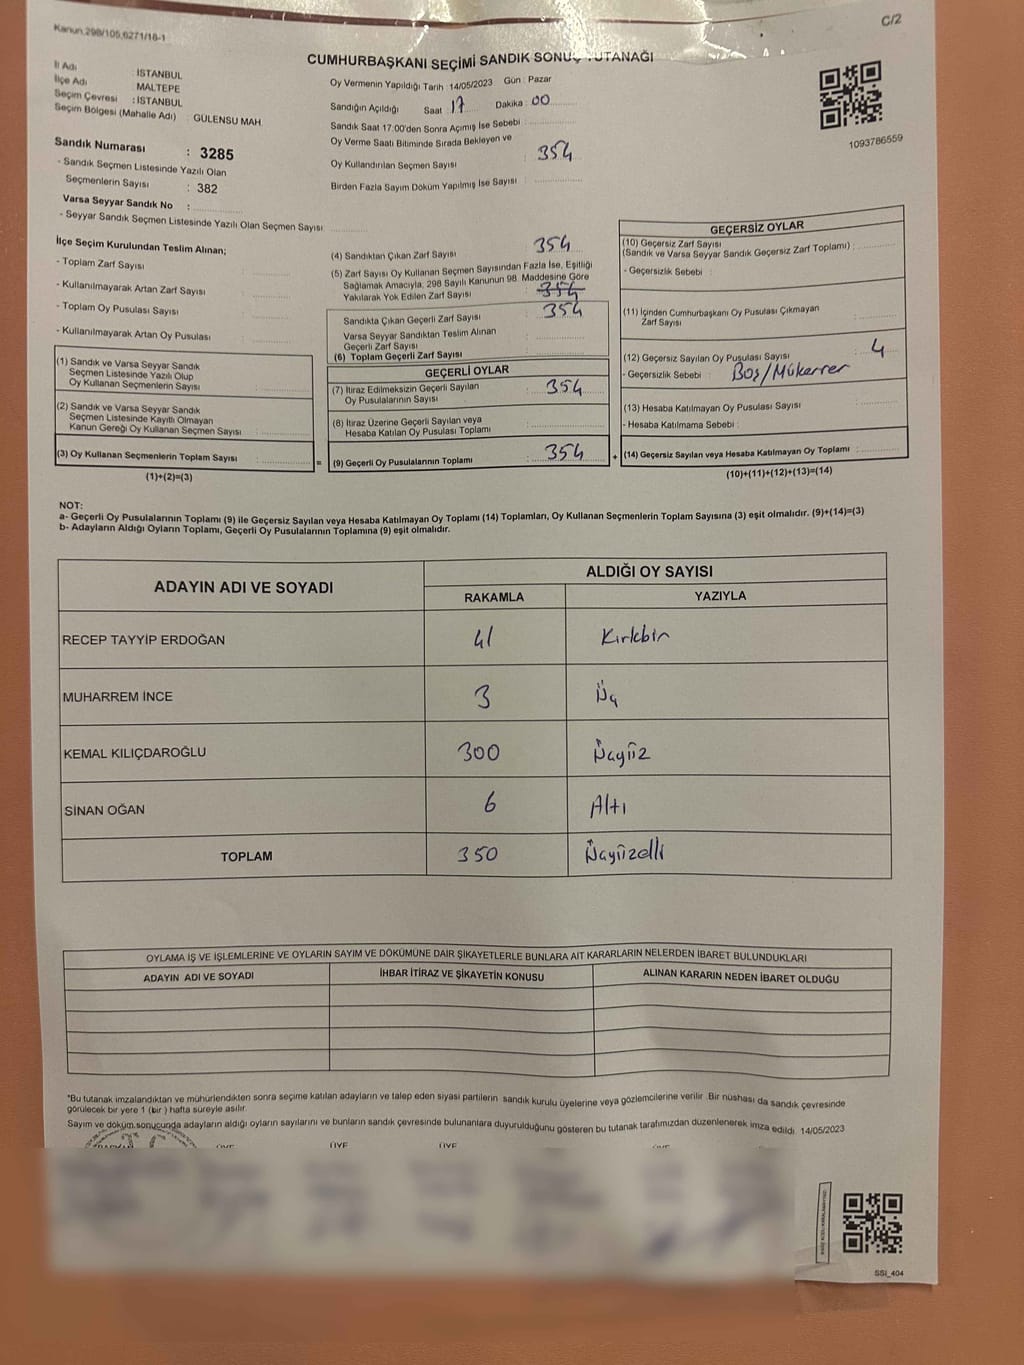 Kanun,298/105,6271/18-1
C/2
CUMHURBAŞKANI SEÇİMİ SANDIK SONUÇ TUTANAĞI
İl Adı : İSTANBUL
İlçe Adı : MALTEPE
Seçim Çevresi : İSTANBUL
Seçim Bölgesi (Mahalle Adı) : GÜLENSU MAH.
Oy Vermenin Yapıldığı Tarih : 14/05/2023 Gün : Pazar
Sandığın Açıldığı Saat 17 Dakika : 00
Sandık Saat 17:00'den Sonra Açımış İse Sebebi :
Oy Verme Saati Bitiminde Sırada Bekleyen ve
Oy Kullandırılan Seçmen Sayısı : 354
Birden Fazla Sayım Döküm Yapılmış İse Sayısı :
1093786559
Sandık Numarası : 3285
- Sandık Seçmen Listesinde Yazılı Olan
Seçmenlerin Sayısı : 382
Varsa Seyyar Sandık No :
- Seyyar Sandık Seçmen Listesinde Yazılı Olan Seçmen Sayısı :
İlçe Seçim Kurulundan Teslim Alınan;
- Toplam Zarf Sayısı :
- Kullanılmayarak Artan Zarf Sayısı :
- Toplam Oy Pusulası Sayısı :
- Kullanılmayarak Artan Oy Pusulası :
(1) Sandık ve Varsa Seyyar Sandık
Seçmen Listesinde Yazılı Olup
Oy Kullanan Seçmenlerin Sayısı :
(2) Sandık ve Varsa Seyyar Sandık
Seçmen Listesinde Kayıtlı Olmayan
Kanun Gereği Oy Kullanan Seçmen Sayısı :
(3) Oy Kullanan Seçmenlerin Toplam Sayısı :
(1)+(2)=(3)
(4) Sandıktan Çıkan Zarf Sayısı : 354
(5) Zarf Sayısı Oy Kullanan Seçmen Sayısından Fazla İse, Eşitliği
Sağlamak Amacıyla, 298 Sayılı Kanunun 98. Maddesine Göre
Yakılarak Yok Edilen Zarf Sayısı : 354
Sandıkta Çıkan Geçerli Zarf Sayısı : 354
Varsa Seyyar Sandıktan Teslim Alınan
Geçerli Zarf Sayısı :
(6) Toplam Geçerli Zarf Sayısı :
GEÇERLİ OYLAR
(7) İtiraz Edilmeksizin Geçerli Sayılan
Oy Pusulalarının Sayısı : 354
(8) İtiraz Üzerine Geçerli Sayılan veya
Hesaba Katılan Oy Pusulası Toplamı :
= (9) Geçerli Oy Pusulalarının Toplamı : 354 +
GEÇERSİZ OYLAR
(10) Geçersiz Zarf Sayısı
(Sandık ve Varsa Seyyar Sandık Geçersiz Zarf Toplamı) :
- Geçersizlik Sebebi :
(11) İçinden Cumhurbaşkanı Oy Pusulası Çıkmayan
Zarf Sayısı :
(12) Geçersiz Sayılan Oy Pusulası Sayısı : 4
- Geçersizlik Sebebi : Boş/Mükerrer
(13) Hesaba Katılmayan Oy Pusulası Sayısı :
- Hesaba Katılmama Sebebi :
(14) Geçersiz Sayılan veya Hesaba Katılmayan Oy Toplamı :
(10)+(11)+(12)+(13)=(14)
NOT:
a- Geçerli Oy Pusulalarının Toplamı (9) ile Geçersiz Sayılan veya Hesaba Katılmayan Oy Toplamı (14) Toplamları, Oy Kullanan Seçmenlerin Toplam Sayısına (3) eşit olmalıdır. (9)+(14)=(3)
b- Adayların Aldığı Oyların Toplamı, Geçerli Oy Pusulalarının Toplamına (9) eşit olmalıdır.
ADAYIN ADI VE SOYADI
ALDIĞI OY SAYISI
RAKAMLA YAZIYLA
RECEP TAYYİP ERDOĞAN 41 Kırkbir
MUHARREM İNCE 3 Üç
KEMAL KILIÇDAROĞLU 300 Üçyüz
SİNAN OĞAN 6 Altı
TOPLAM 350 Üçyüzelli
OYLAMA İŞ VE İŞLEMLERİNE VE OYLARIN SAYIM VE DÖKÜMÜNE DAİR ŞİKAYETLERLE BUNLARA AİT KARARLARIN NELERDEN İBARET BULUNDUKLARI
ADAYIN ADI VE SOYADI İHBAR İTİRAZ VE ŞİKAYETİN KONUSU ALINAN KARARIN NEDEN İBARET OLDUĞU
*Bu tutanak imzalandıktan ve mühürlendikten sonra seçime katılan adayların ve talep eden siyasi partilerin sandık kurulu üyelerine veya gözlemcilerine verilir. Bir nüshası da sandık çevresinde
görülecek bir yere 1 (bir ) hafta süreyle asılır.
Sayım ve döküm sonucunda adayların aldığı oyların sayılarını ve bunların sandık çevresinde bulunanlara duyurulduğunu gösteren bu tutanak tarafımızdan düzenlenerek imza edildi. 14/05/2023
ÜYE ÜYE ÜYE
SSI_404